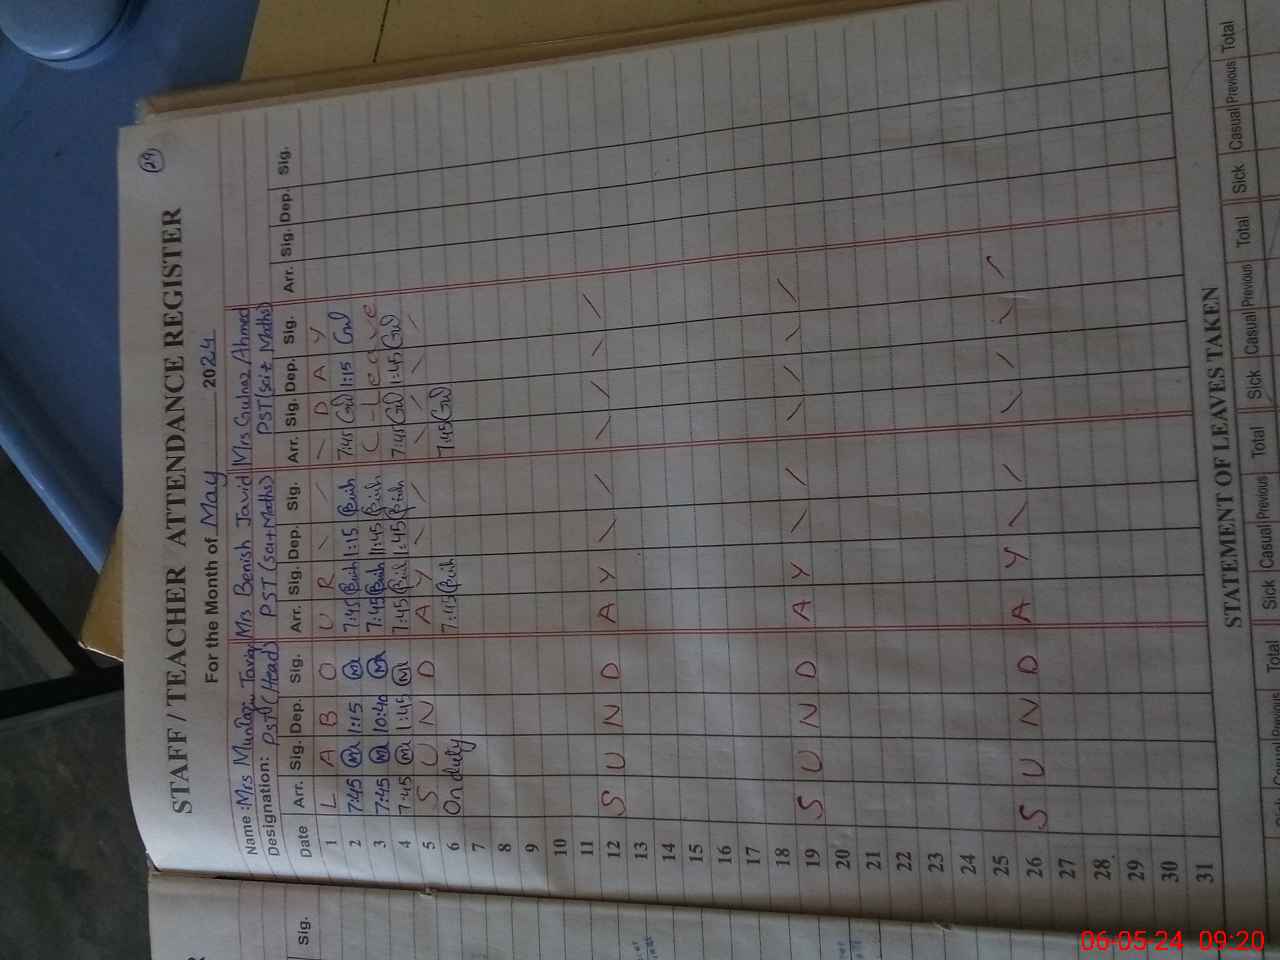 (29)
STAFF / TEACHER ATTENDANCE REGISTER
For the Month of May 2024
Name : Mrs Javid Mrs Benish Javid Mrs Gulnaz Ahmed
Designation: Pst (Head) PST (sci+Maths) PST (sci+ Maths)
Date Arr. Sig. Dep. Sig. Arr. Sig. Dep. Sig. Arr. Sig. Dep. Sig. Arr. Sig. Dep. Sig.
1 L A B O U R \ / \ D A Y
2 7:45 1:15 7:45 Benh 1:15 Benh 7:45 Gul 1:15 Gul
3 7:45 10:40 7:45 Benh 1:45 Benh C - Leave
4 7:45 1:45 7:45 Benh 1:45 Benh 7:45 Gul 1:45 Gul
5 S U N D A Y \ / \ / \ /
6 On duty 7:45 Benh 7:45 Gul
7
8
9
10
11
12 S U N D A Y \ / \ / \ /
13
14
15
16
17
18
19 S U N D A Y \ / \ / \ /
20
21
22
23
24
25
26 S U N D A Y \ / \ / \ /
27
28
29
30
31
STATEMENT OF LEAVES TAKEN
Casual Previous Total Sick Casual Previous Total Sick Casual Previous Total Sick Casual Previous Total
Sig.
06-05-24 09:20